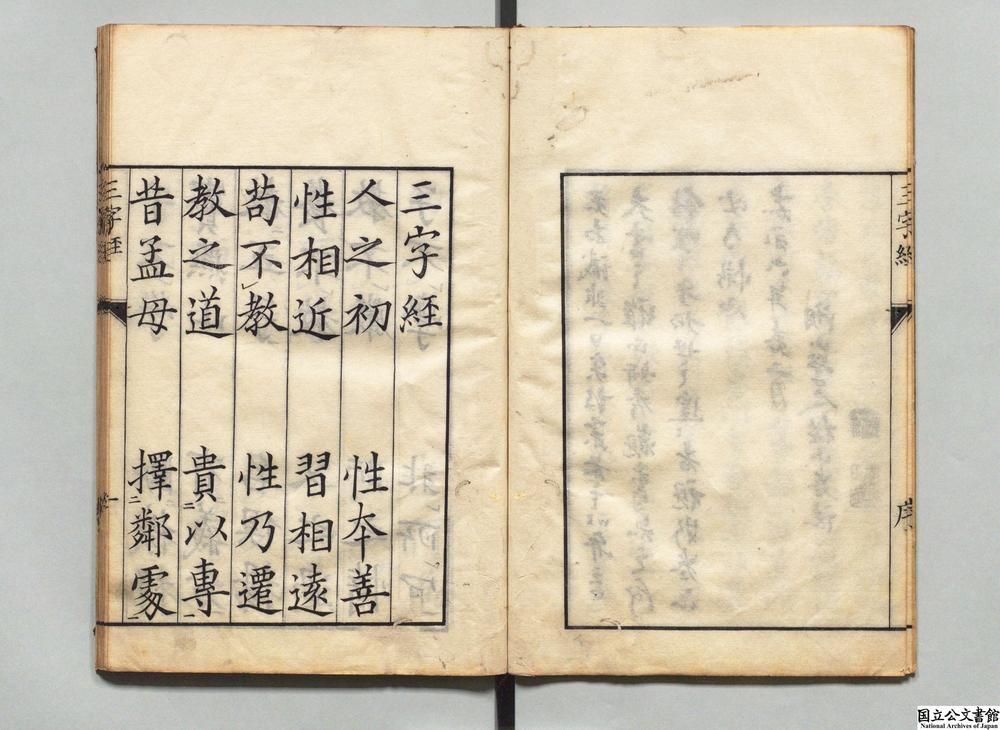 三字經
人之初　性本善
性相近　習相遠
苟不教　性乃遷
教之道　貴二以專一
昔孟母　擇二鄰處一
三字經
序
国立公文書館
National Archives of Japan